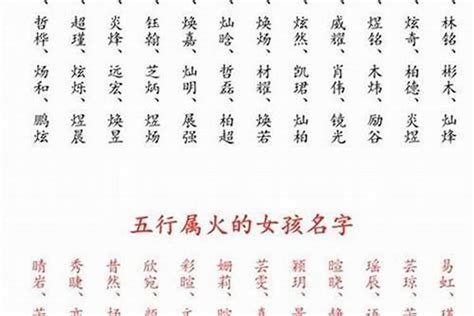 、林铭、彬木、灿烽
、炫奇、柏德、炎煜
、煜铭、木炜、励谷
、威耀、肖伟、镜光
、炫然、凯珺、灿翰
、焕炀、材耀、焕若
、灿晗、哲磊、柏超
、焕嘉、灿明、展强
、钰翰、芝炳、煜炀
、炎烽、远宏、焕昱
、超瑾、炫烁、煜晨
、哲桦、炀和、鹏炫
五行属火的女孩名字
易虹、
芸琼、
瑶辰、
暄晓、
颖玥、
芸雯、
姗莉、
彩暄、
欣宛、
昔然、
秀睫、
晴岩、